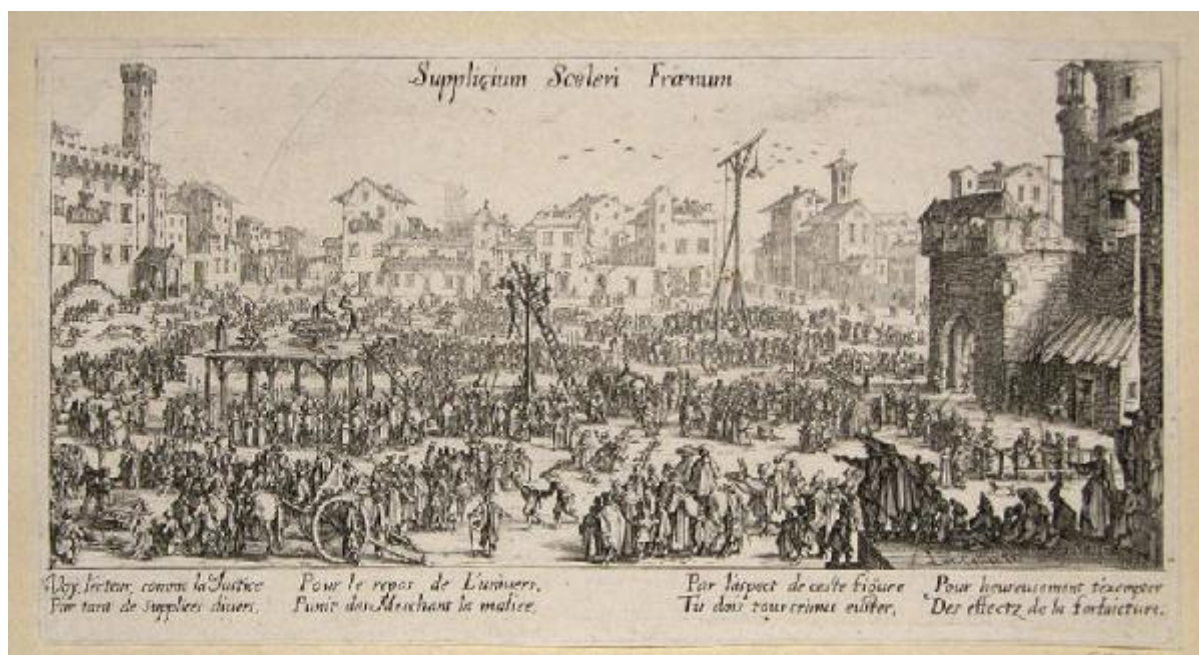 Supplicium Sceleri Frœnum
Voy lecteur, comme la Justice
Par tant de supplices diuers,
Pour le repos de L'uniuers,
Punit des Meschant la malice,
Par l'aspect de ceste figure
Tu dois tous crimes euiter,
Pour heureusement t'exempter
Des effectz de la forfaicture.